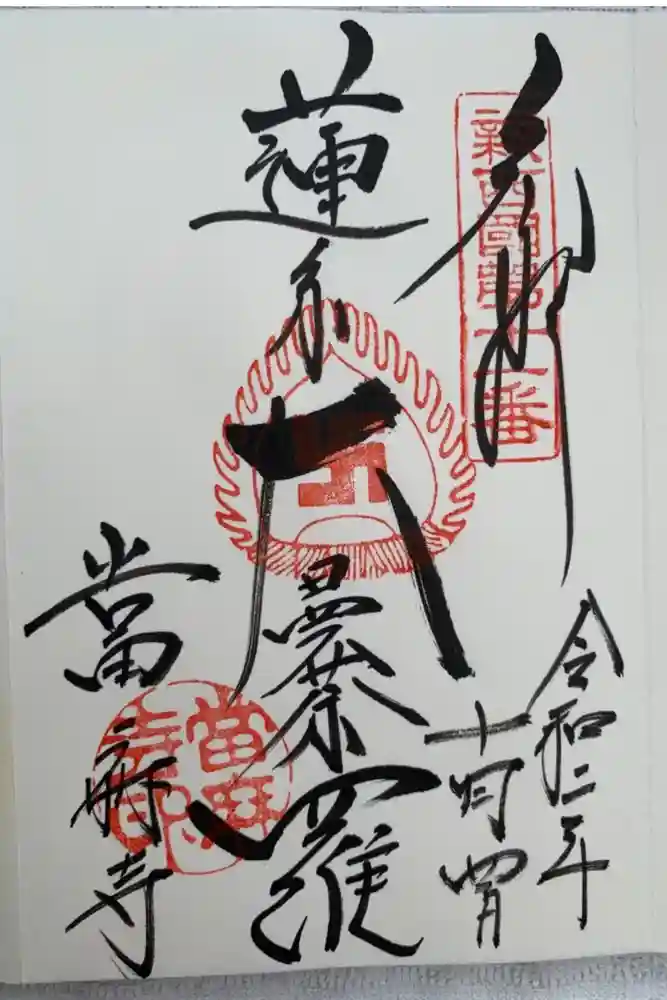 奉拝
新西國第十一番
令和二年
十月四日
蓮糸大曼荼羅
當麻寺
當麻寺印